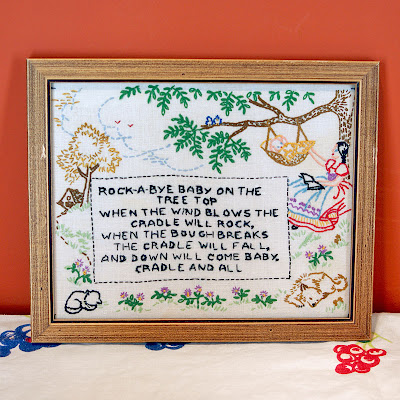 ROCK-A-BYE BABY ON THE
TREE TOP
WHEN THE WIND BLOWS THE
CRADLE WILL ROCK,
WHEN THE BOUGH BREAKS
THE CRADLE WILL FALL,
AND DOWN WILL COME BABY,
CRADLE AND ALL